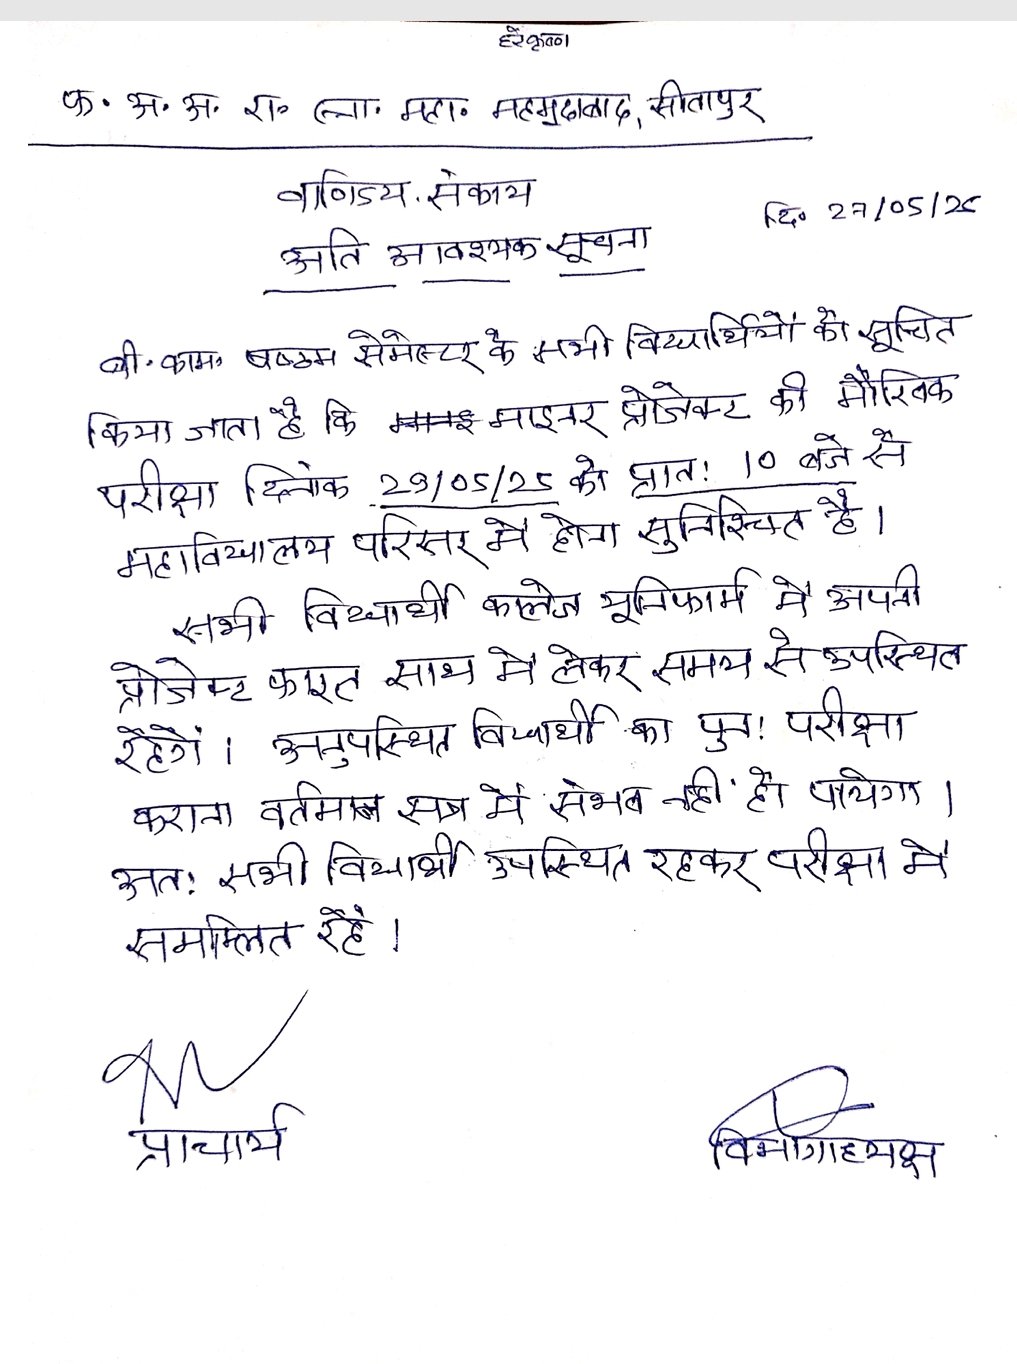 हरेकृष्ण
फ. अ. अ. रा. स्ना. महा. महमुदाबाद, सीतापुर
वाणिज्य संकाय
दि० 27/05/25
अति आवश्यक सूचना
बी. काम. षष्ठम सेमेस्टर के सभी विद्यार्थियों को सूचित
किया जाता है कि माइनर प्रोजेक्ट की मौखिक
परीक्षा दिनांक 29/05/25 को प्रातः 10 बजे से
महाविद्यालय परिसर में होना सुनिश्चित है।
सभी विद्यार्थी कालेज यूनिफार्म में अपनी
प्रोजेक्ट फाइल साथ में लेकर समय से उपस्थित
रहेंगें। अनुपस्थित विद्यार्थी का पुनः परीक्षा
कराना वर्तमान सत्र में संभव नहीं हो पायेगा।
अतः सभी विद्यार्थी उपस्थित रहकर परीक्षा में
सममलित रहें।
प्राचार्य
विभागाध्यक्ष